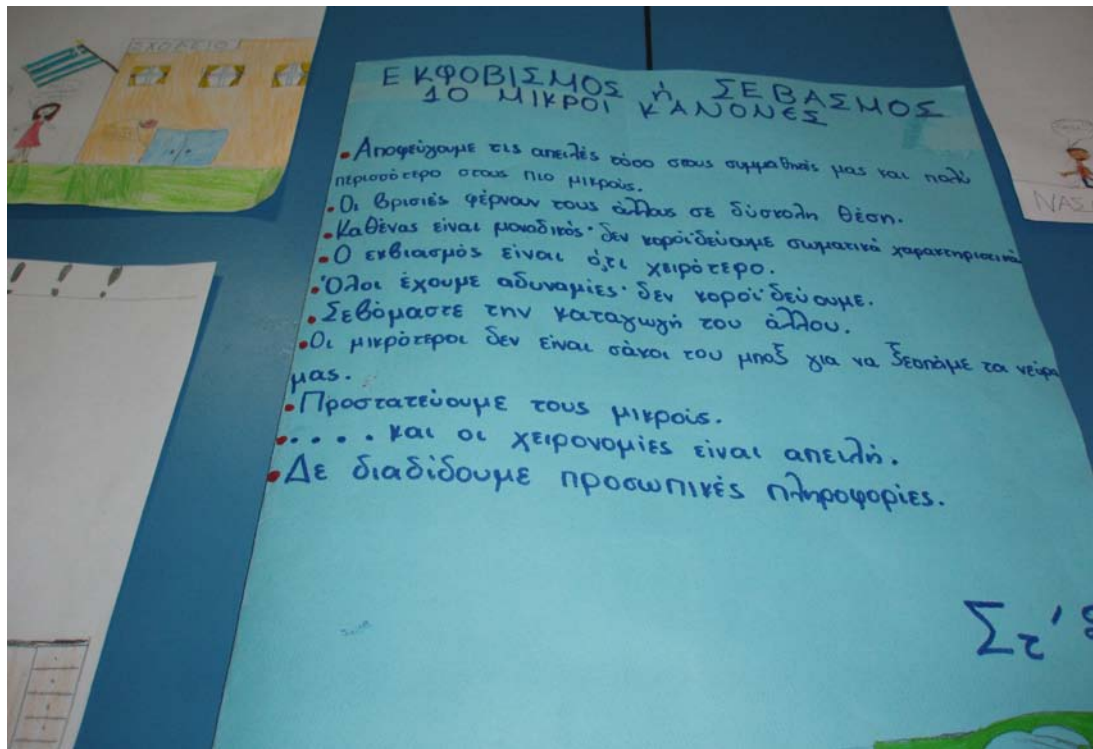 ΣΧΟΛΕΙΟ
ΕΚΦΟΒΙΣΜΟΣ ή ΣΕΒΑΣΜΟΣ
10 ΜΙΚΡΟΙ ΚΑΝΟΝΕΣ
• Αποφεύγουμε τις απειλές τόσο στους συμμαθητές μας και πολύ
περισσότερο στους πιο μικρούς.
• Οι βρισιές φέρνουν τους άλλους σε δύσκολη θέση.
• Καθένας είναι μοναδικός· δεν κοροϊδεύουμε σωματικά χαρακτηριστικά
• Ο εκβιασμός είναι ό,τι χειρότερο.
• Όλοι έχουμε αδυναμίες· δεν κοροϊδεύουμε.
• Σεβόμαστε την καταγωγή του άλλου.
• Οι μικρότεροι δεν είναι σάκοι του μποξ για να ξεσπάμε τα νεύρα
μας.
• Προστατεύουμε τους μικρούς.
• .... και οι χειρονομίες είναι απειλή.
• Δε διαδίδουμε προσωπικές πληροφορίες.
Στ'
!!!